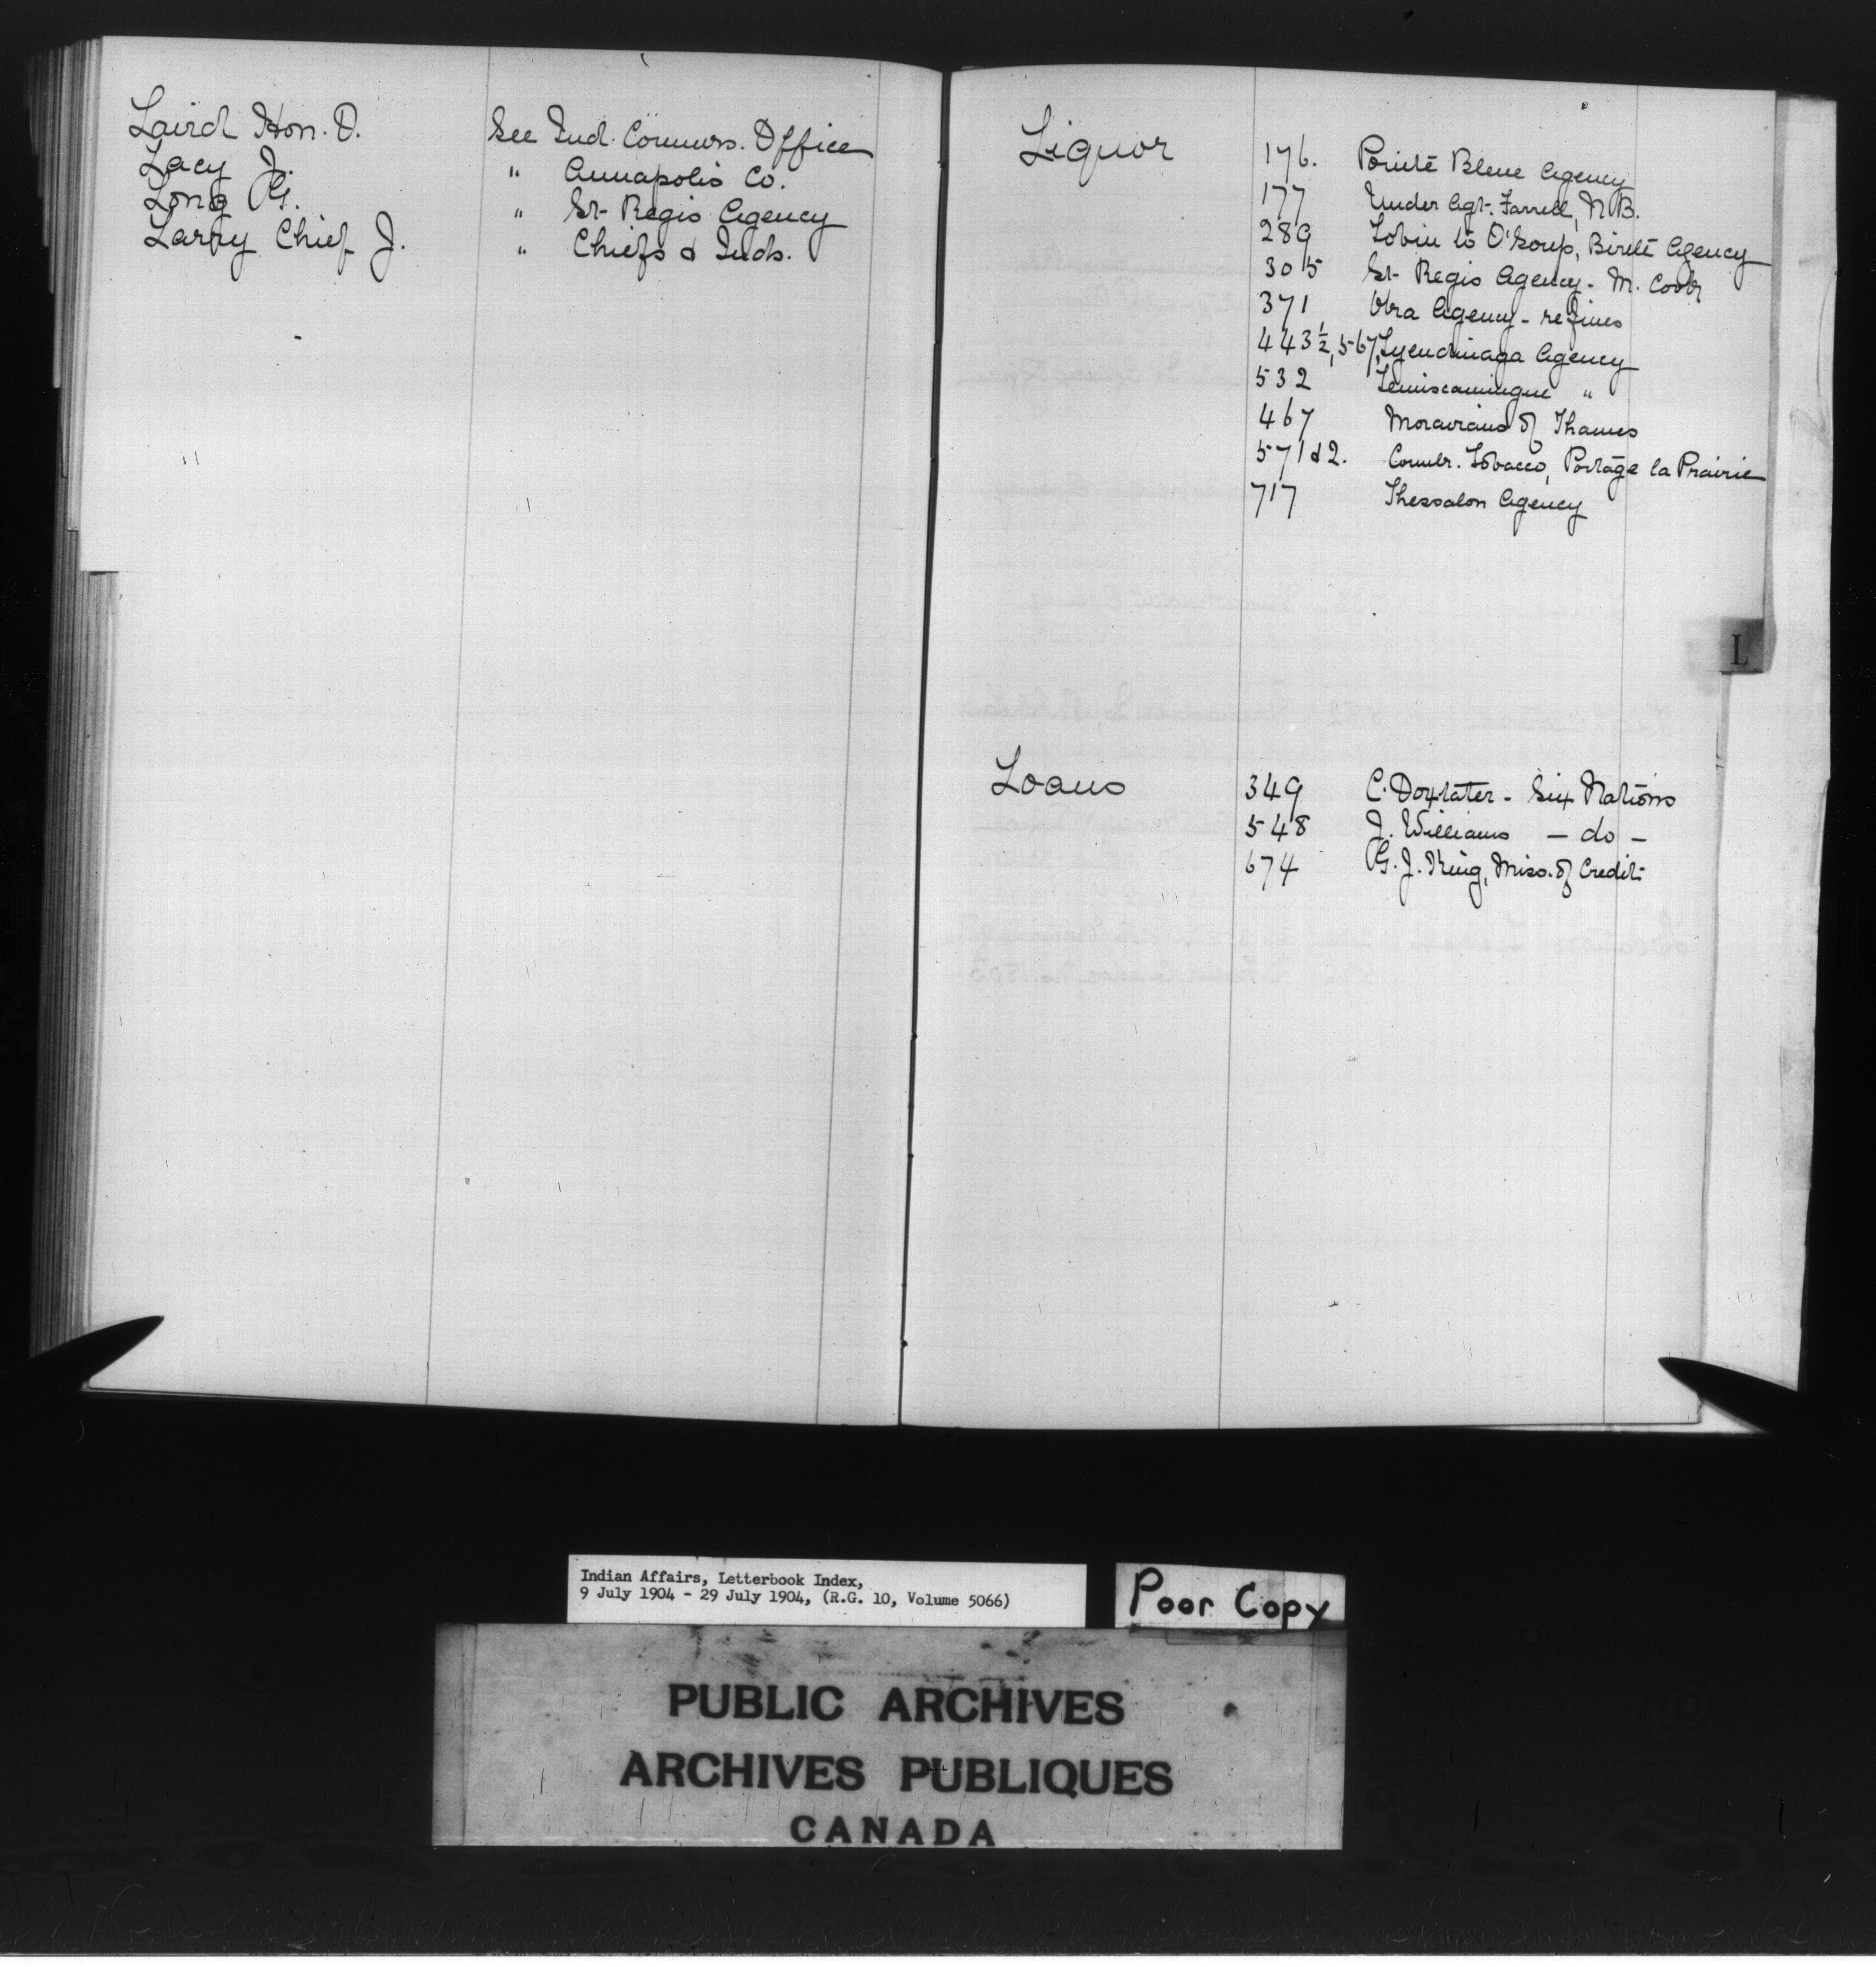 Laird Hon. D. See Ind. Commrs. Office
Lacy J. " Annapolis Co.
Long G. " St. Regis Agency
Larry Chief J. " Chiefs & Inds.
Liquor 176. Pointe Bleue Agency
177 Under Agt. Farrell, N.B.
289 Tobin to O'Soup, Birtle Agency
305 St. Regis Agency - M. Cook
371 Vira Agency - re fines
443½, 567, Tyendinaga Agency
532 Temiscamingue "
467 Moravians of Thames
571 & 2. Comlr. Tobacco, Portage la Prairie
717 Thessalon Agency
L
Loans 349 C. Doxtater - Six Nations
548 J. Williams - do -
674 G. J. King, Miss. of Credit
Indian Affairs, Letterbook Index,
9 July 1904 - 29 July 1904, (R.G. 10, Volume 5066)
Poor Copy
PUBLIC ARCHIVES
ARCHIVES PUBLIQUES
CANADA